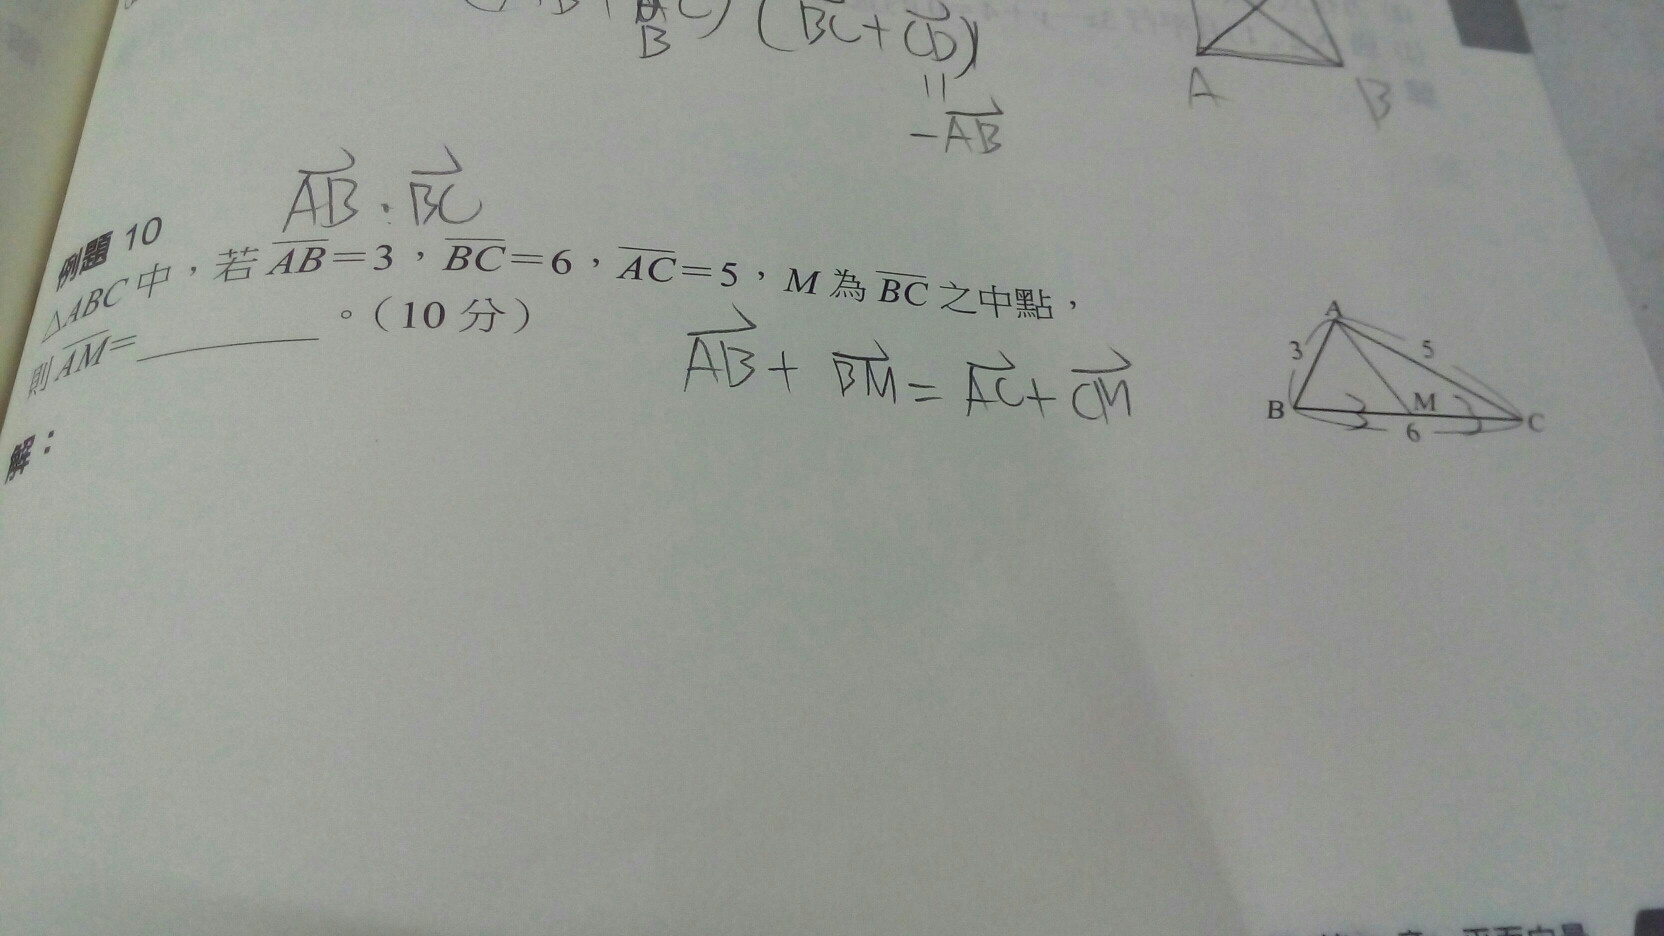 B
(BC+CD)
A
B
=
-AB
AB·BC
例題 10
△ABC 中，若 AB=3，BC=6，AC=5，M 為 BC 之中點，
則 AM=________。（10 分）
AB+BM=AC+CM
A
3
5
B
M
C
3
3
6
解：
平面向量